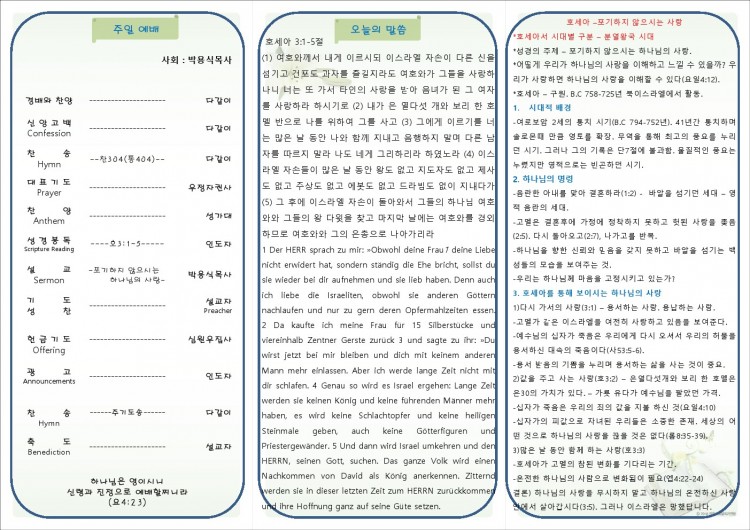 주일 예배
사회 : 박용식목사
경배와 찬양 ------------------ 다같이
신 앙 고 백 ------------------ 다같이
Confession
찬 송 --찬304(통404)-- 다같이
Hymn
대 표 기 도 ------------------ 우정자권사
Prayer
찬 양 ------------------ 성가대
Anthem
성 경 봉 독 ----호3:1-5----- 인도자
Scripture Reading
설 교 -포기하지 않으시는 박용식목사
Sermon 하나님의 사랑-
기 도 ------------------ 설교자
성 찬 Preacher
헌 금 기 도 ------------------ 심원우집사
Offering
광 고 ------------------ 인도자
Announcements
찬 송 ------주기도송------ 다같이
Hymn
축 도 ------------------ 설교자
Benediction
하나님은 영이시니
신령과 진정으로 예배할찌니라
(요4:23)
오늘의 말씀
호세아 3:1-5절
(1) 여호와께서 내게 이르시되 이스라엘 자손이 다른 신을
섬기고 건포도 과자를 즐길지라도 여호와가 그들을 사랑하
나니 너는 또 가서 타인의 사랑을 받아 음녀가 된 그 여자
를 사랑하라 하시기로 (2) 내가 은 열다섯 개와 보리 한 호
멜 반으로 나를 위하여 그를 사고 (3) 그에게 이르기를 너
는 많은 날 동안 나와 함께 지내고 음행하지 말며 다른 남
자를 따르지 말라 나도 네게 그리하리라 하였노라 (4) 이스
라엘 자손들이 많은 날 동안 왕도 없고 지도자도 없고 제사
도 없고 주상도 없고 에봇도 없고 드라빔도 없이 지내다가
(5) 그 후에 이스라엘 자손이 돌아와서 그들의 하나님 여호
와와 그들의 왕 다윗을 찾고 마지막 날에는 여호와를 경외
하므로 여호와와 그의 은총으로 나아가리라
1 Der HERR sprach zu mir: »Obwohl deine Frau 7 deine Liebe
nicht erwidert hat, sondern ständig die Ehe bricht, sollst du
sie wieder bei dir aufnehmen und sie lieb haben. Denn auch
ich liebe die Israeliten, obwohl sie anderen Göttern
nachlaufen und nur zu gern deren Opfermahlzeiten essen.
2 Da kaufte ich meine Frau für 15 Silberstücke und
viereinhalb Zentner Gerste zurück 3 und sagte zu ihr: »Du
wirst jetzt bei mir bleiben und dich mit keinem anderen
Mann mehr einlassen. Aber ich werde lange Zeit nicht mit
dir schlafen. 4 Genau so wird es Israel ergehen: Lange Zeit
werden sie keinen König und keine führenden Männer mehr
haben, es wird keine Schlachtopfer und keine heiligen
Steinmale geben, auch keine Götterfiguren und
Priestergewänder. 5 Und dann wird Israel umkehren und den
HERRN, seinen Gott, suchen. Das ganze Volk wird einen
Nachkommen von David als König anerkennen. Zitternd
werden sie in dieser letzten Zeit zum HERRN zurückkommen
und ihre Hoffnung ganz auf seine Güte setzen.
호세아 –포기하지 않으시는 사랑
*호세아서 시대별 구분 – 분열왕국 시대
*성경의 주제 – 포기하지 않으시는 하나님의 사랑.
*어떻게 우리가 하나님의 사랑을 이해하고 느낄 수 있을까? 우
리가 사랑하면 하나님의 사랑을 이해할 수 있다(요일4:12).
*호세아 – 구원. B.C 758-725년 북이스라엘에서 활동.
1. 시대적 배경
-여로보암 2세의 통치 시기(B.C 794-752년). 41년간 통치하며
솔로몬때 만큼 영토를 확장. 무역을 통해 최고의 풍요를 누리
던 시기. 그러나 그의 기록은 단7절에 불과함. 물질적인 풍요는
누렸지만 영적으로는 빈곤하던 시기.
2. 하나님의 명령
-음란한 아내를 맞아 결혼하라(1:2) - 바알을 섬기던 세대 – 영
적 음란의 세대.
-고멜은 결혼후에 가정에 정착하지 못하고 헛된 사랑을 좇음
(2:5). 다시 돌아오고(2:7), 나가고를 반복.
-하나님을 향한 신뢰와 믿음을 갖지 못하고 바알을 섬기는 백
성들의 모습을 보여주는 것.
-우리는 하나님께 마음을 고정시키고 있는가?
3. 호세아를 통해 보이시는 하나님의 사랑
1)다시 가서의 사랑(3:1) – 용서하는 사랑. 용납하는 사랑.
-고멜가 같은 이스라엘를 여전히 사랑하고 있음를 보여준다.
-예수님의 십자가 죽음은 우리에게 다시 오셔서 우리의 허물을
용서하신 대속의 죽음이다(사53:5-6).
-용서 받음의 기쁨을 누리며 용서하는 삶을 사는 것이 중요.
2)값을 주고 사는 사랑(호3:2) – 은열다섯개와 보리 한 호멜은
은30의 가치가 있다. – 가룟 유다가 예수님을 팔았던 가격.
-십자가 죽음은 우리의 죄의 값을 지불 하신 것(요일4:10)
-십자가의 피값으로 자녀된 우리들은 소중한 존재. 세상의 어
떤 것으로 하나님의 사랑을 끊을 것은 없다(롬8:35-39).
3)많은 날 동안 함께 하는 사랑(호3:3)
-호세아가 고멜의 참된 변화를 기다리는 기간.
-온전한 하나님의 사람으로 변화됨이 필요(엡4:22-24)
결론) 하나님의 사랑를 무시하지 말고 하나님의 온전하신 사랑
안에서 살아갑시다(3:5). 그러나 이스라엘은 망했답니다.